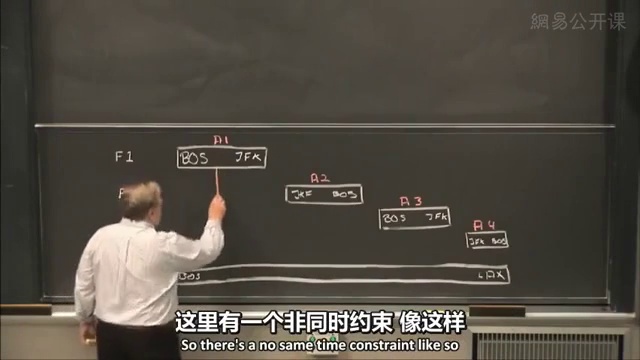 網易公开课
A1
F1 BOS JFK
A2
F JKF BOS
A3
BOS JFK
A4
JFK BOS
BOS LAX
这里有一个非同时约束 像这样
So there's a no same time constraint like so